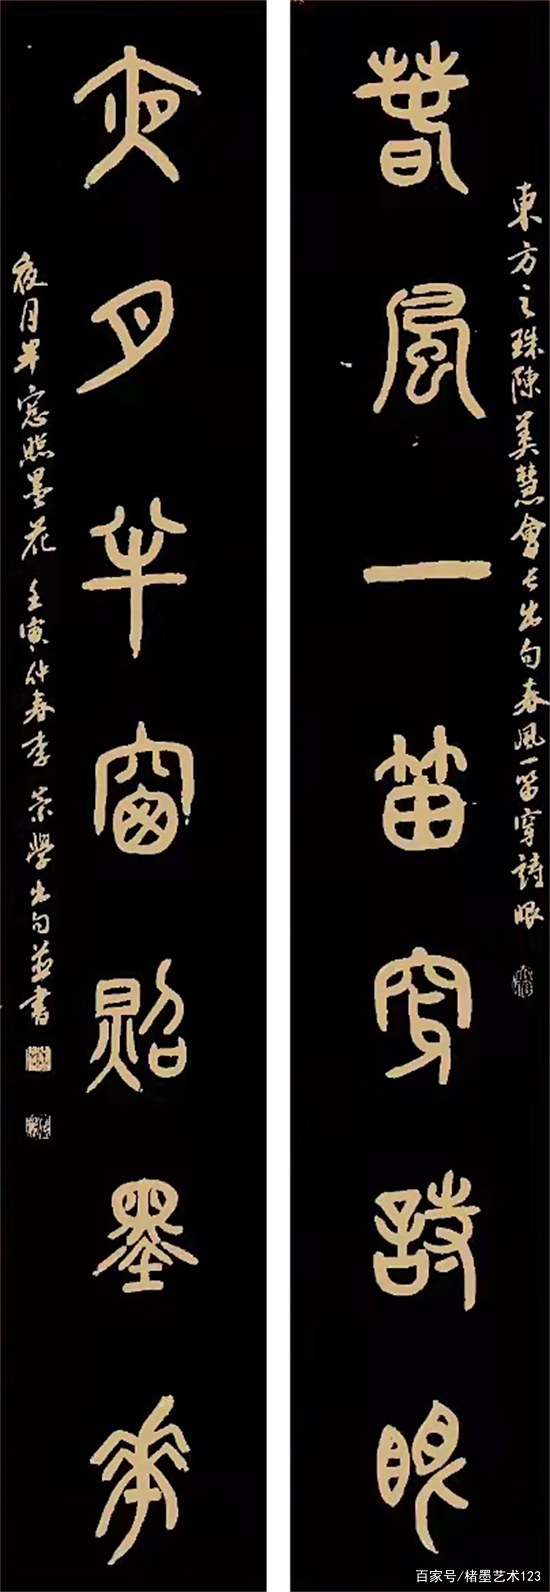 春風一笛穿詩眼
東方之珠陳美慧會長出句春風一笛穿詩眼
夜月半窗照墨花
夜月半窗照墨花 壬寅仲春李 榮學出句並書
百家号/楮墨艺术123